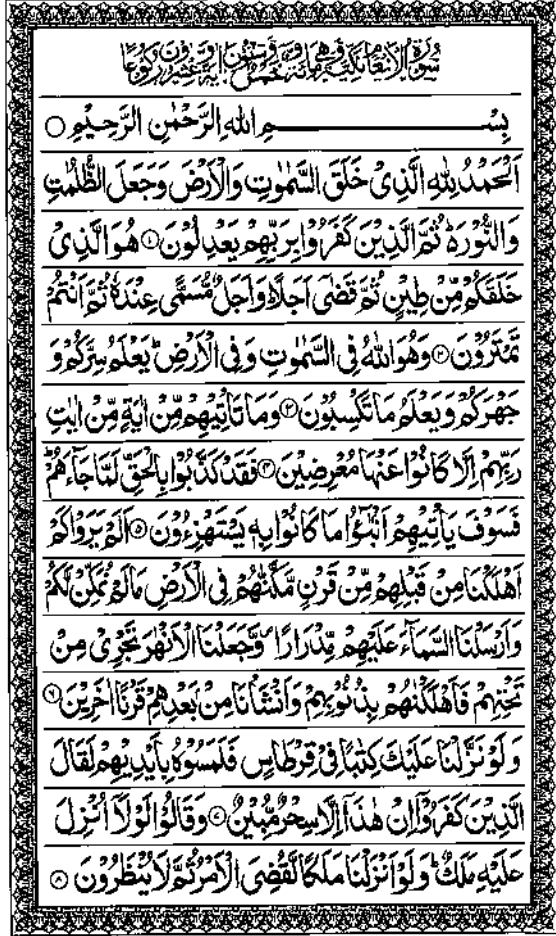 سُوْرَةُ الْاَنْعَامِ مَكِّيَّةٌ وَّهِيَ مِائَةٌ وَّخَمْسٌ وَّسِتُّوْنَ اٰيَةً وَّعِشْرُوْنَ رُكُوْعًا
بِسْمِ اللهِ الرَّحْمٰنِ الرَّحِيْمِ ○
اَلْحَمْدُ لِلّٰهِ الَّذِیْ خَلَقَ السَّمٰوٰتِ وَالْاَرْضَ وَجَعَلَ الظُّلُمٰتِ
وَالنُّوْرَ ؕ ثُمَّ الَّذِیْنَ كَفَرُوْا بِرَبِّهِمْ یَعْدِلُوْنَ ۝۱ هُوَ الَّذِیْ
خَلَقَكُمْ مِّنْ طِیْنٍ ثُمَّ قَضٰۤی اَجَلًا ؕ وَاَجَلٌ مُّسَمًّی عِنْدَهٗ ثُمَّ اَنْتُمْ
تَمْتَرُوْنَ ۝۲ وَهُوَ اللهُ فِی السَّمٰوٰتِ وَفِی الْاَرْضِ ؕ یَعْلَمُ سِرَّكُمْ وَ
جَهْرَكُمْ وَیَعْلَمُ مَا تَكْسِبُوْنَ ۝۳ وَمَا تَاْتِیْهِمْ مِّنْ اٰیَةٍ مِّنْ اٰیٰتِ
رَبِّهِمْ اِلَّا كَانُوْا عَنْهَا مُعْرِضِیْنَ ۝۴ فَقَدْ كَذَّبُوْا بِالْحَقِّ لَمَّا جَآءَهُمْ ؕ
فَسَوْفَ یَاْتِیْهِمْ اَنْۢبٰٓؤُا مَا كَانُوْا بِهٖ یَسْتَهْزِءُوْنَ ۝۵ اَلَمْ یَرَوْا كَمْ
اَهْلَكْنَا مِنْ قَبْلِهِمْ مِّنْ قَرْنٍ مَّكَّنّٰهُمْ فِی الْاَرْضِ مَا لَمْ نُمَكِّنْ لَّكُمْ
وَاَرْسَلْنَا السَّمَآءَ عَلَیْهِمْ مِّدْرَارًا ۪ وَّجَعَلْنَا الْاَنْهٰرَ تَجْرِیْ مِنْ
تَحْتِهِمْ فَاَهْلَكْنٰهُمْ بِذُنُوْبِهِمْ وَاَنْشَاْنَا مِنْۢ بَعْدِهِمْ قَرْنًا اٰخَرِیْنَ ۝۶
وَلَوْ نَزَّلْنَا عَلَیْكَ كِتٰبًا فِیْ قِرْطَاسٍ فَلَمَسُوْهُ بِاَیْدِیْهِمْ لَقَالَ
الَّذِیْنَ كَفَرُوْۤا اِنْ هٰذَاۤ اِلَّا سِحْرٌ مُّبِیْنٌ ۝۷ وَقَالُوْا لَوْلَاۤ اُنْزِلَ
عَلَیْهِ مَلَكٌ ؕ وَلَوْ اَنْزَلْنَا مَلَكًا لَّقُضِیَ الْاَمْرُ ثُمَّ لَا یُنْظَرُوْنَ ۝۸